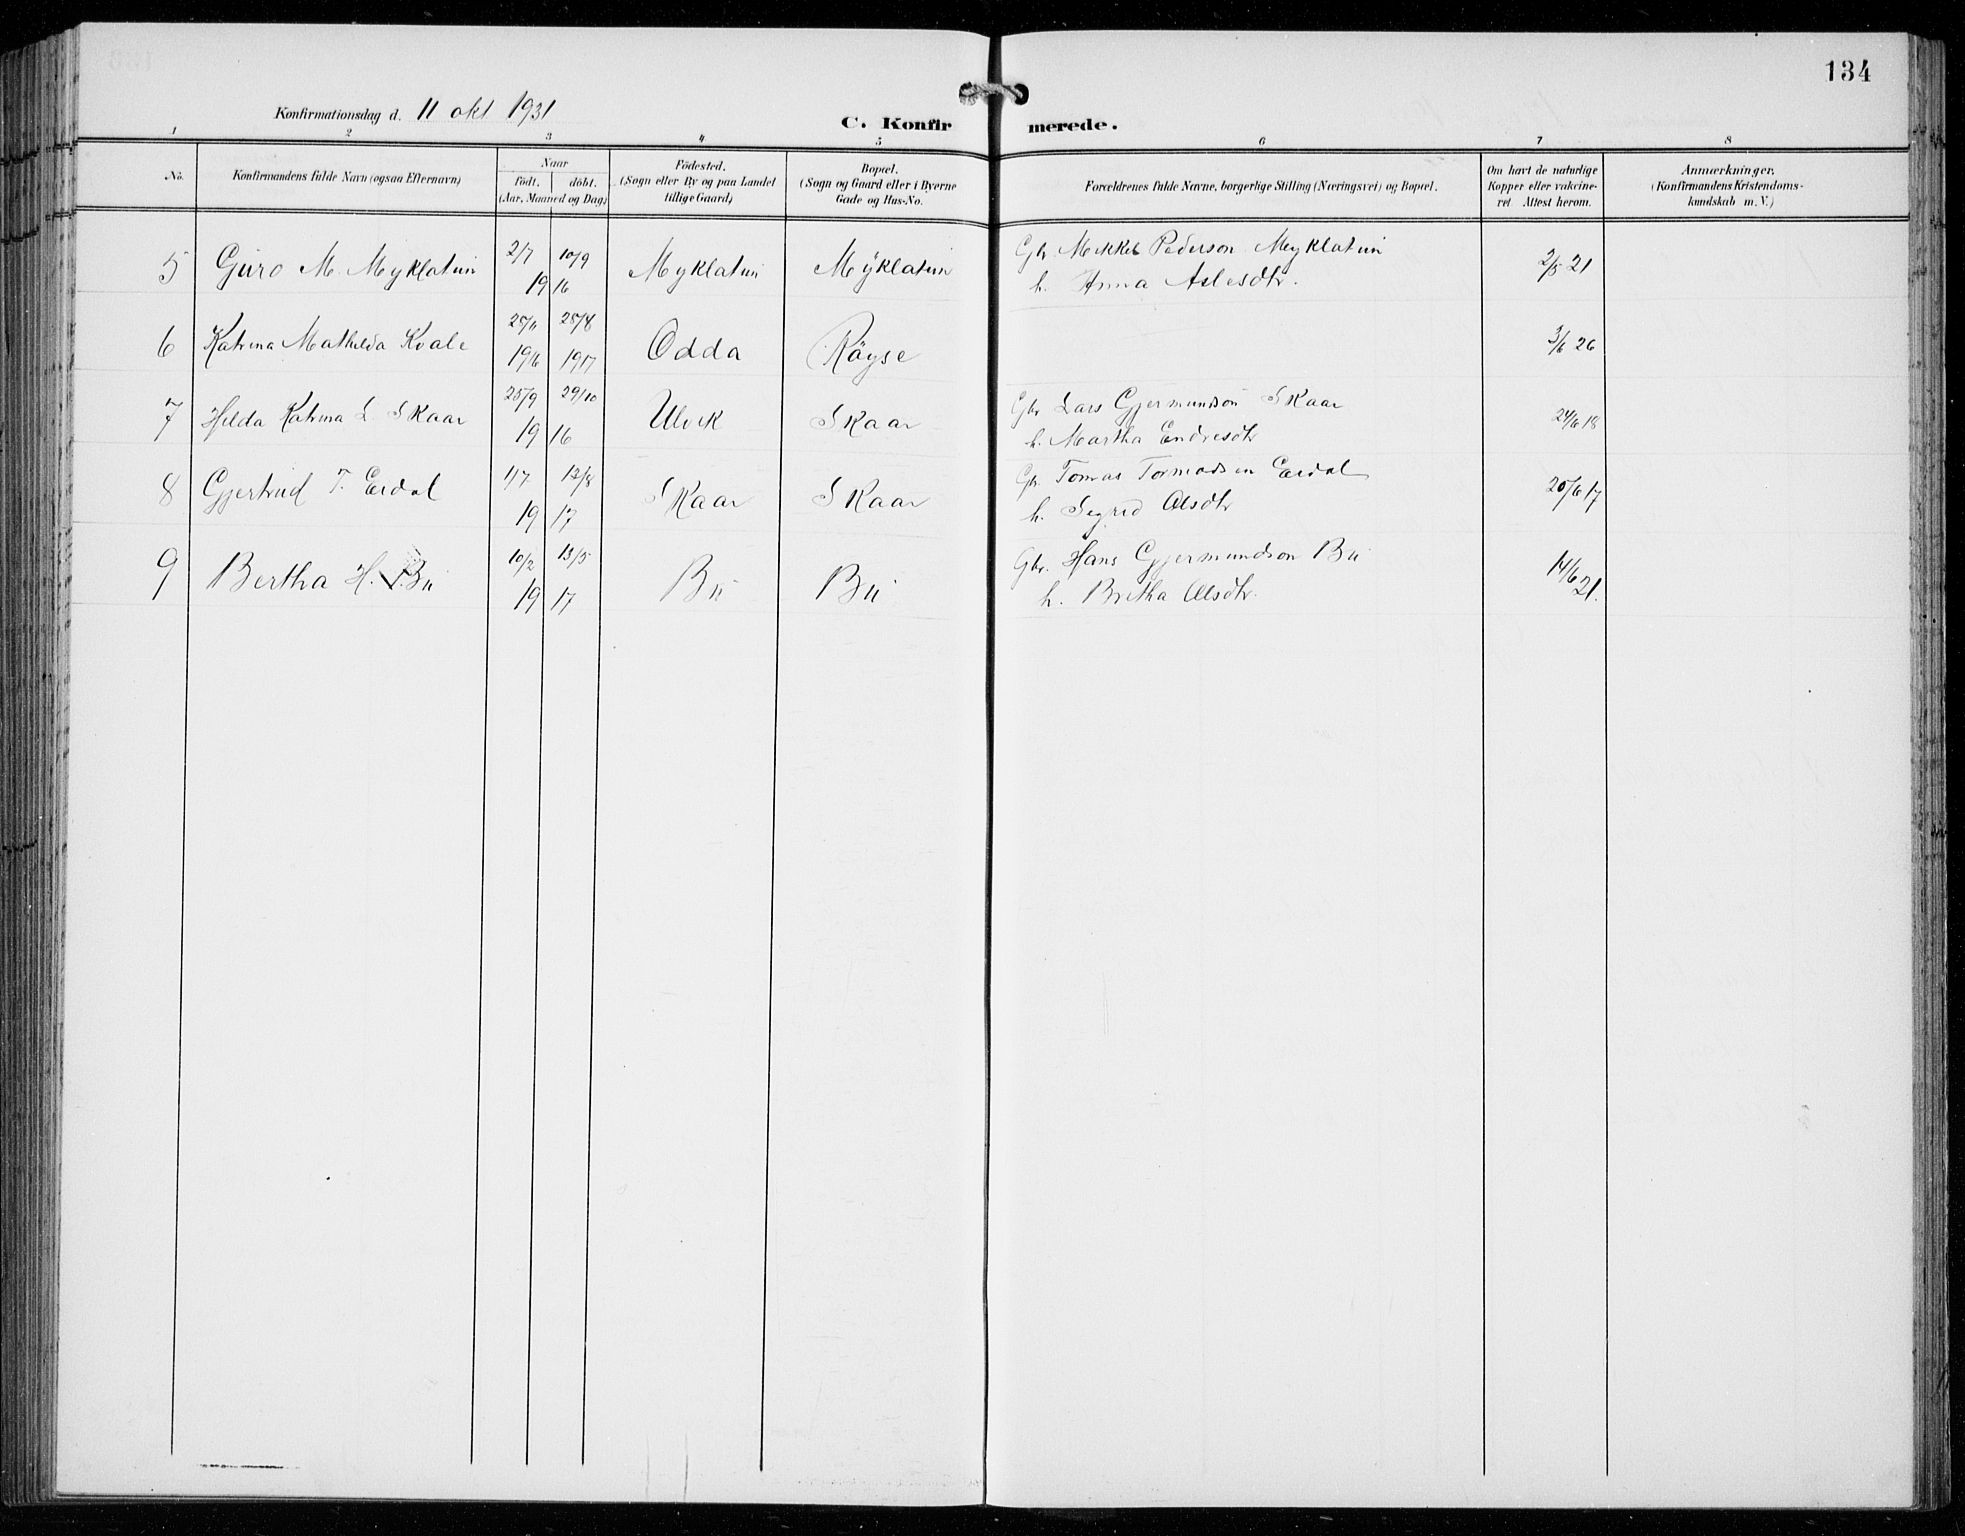 134
Konfirmationsdag d. 11 okt 1931
C. Konfirmerede.
1 2 3 4 5 6 7 8
No.
Konfirmandens fulde Navn (ogsaa Efternavn)
Naar
födt. döbt.
(Aar, Maaned og Dag)
Födested.
(Sogn eller By og paa Landet
tillige Gaard)
Bopæl.
(Sogn og Gaard eller i Byerne
Gade og Hus-No.
Forældrenes fulde Navne, borgerlige Stilling (Næringsvei) og Bopæl.
Om havt de naturlige
Kopper eller vakcine-
ret. Attest herom.
Anmærkninger.
(Konfirmandens Kristendoms-
kundskab m. V.)
5 Guro M. Myklatun 2/7 10/9 Myklatun Myklatun Gbr. Mikkel Pederson Myklatun 2/5 21
19 16 h. Anna Aslesdtr.
6 Katrina Mathilda Kvale 28/11 28/8 Odda Röyse 3/6 26
1916 1917
7 Hilda Katrina L. Skaar 25/9 29/10 Ulvik Skaar Gbr Lars Gjermundson Skaar 24/6 18
19 16 h. Martha Endresdtr
8 Gjertrud T. Eidal 1/7 12/8 Skaar Skaar Gbr. Tomas Tormodson Eidal 20/6 17
19 17 h. Sigrid Olsdtr
9 Bertha H. Bu 10/2 13/5 Bu Bu Gbr. Hans Gjermundson Bu 14/6 21.
19 17 h. Britha Olsdtr.